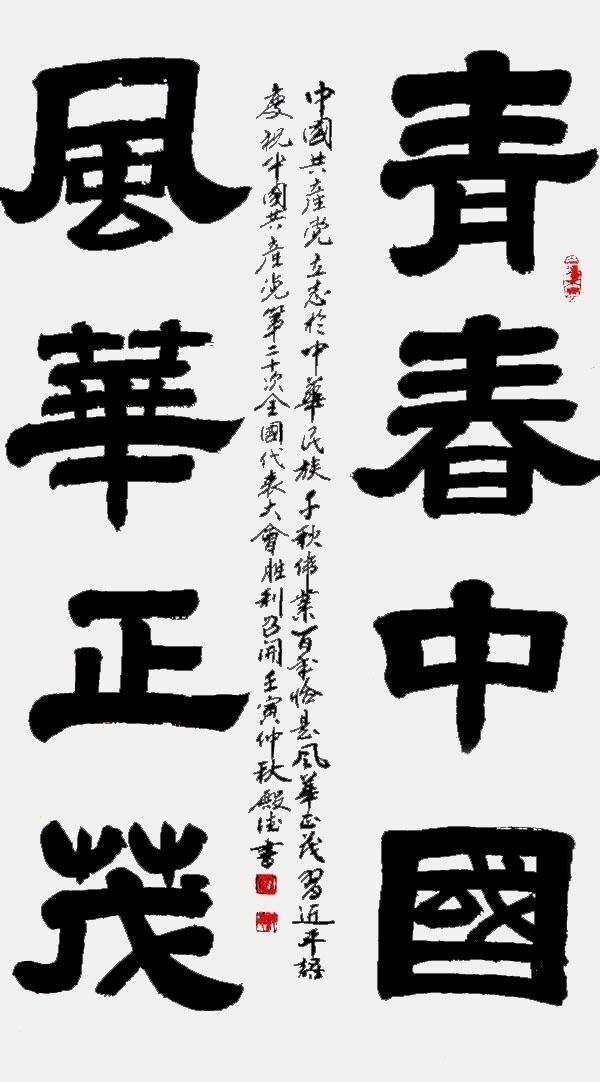 青春中國
中國共產党立志於中華民族千秋偉業百年恰是風華正茂習近平語
慶祝中國共產党第二十次全國代表大會胜利召開壬寅仲秋殿佳書
風華正茂